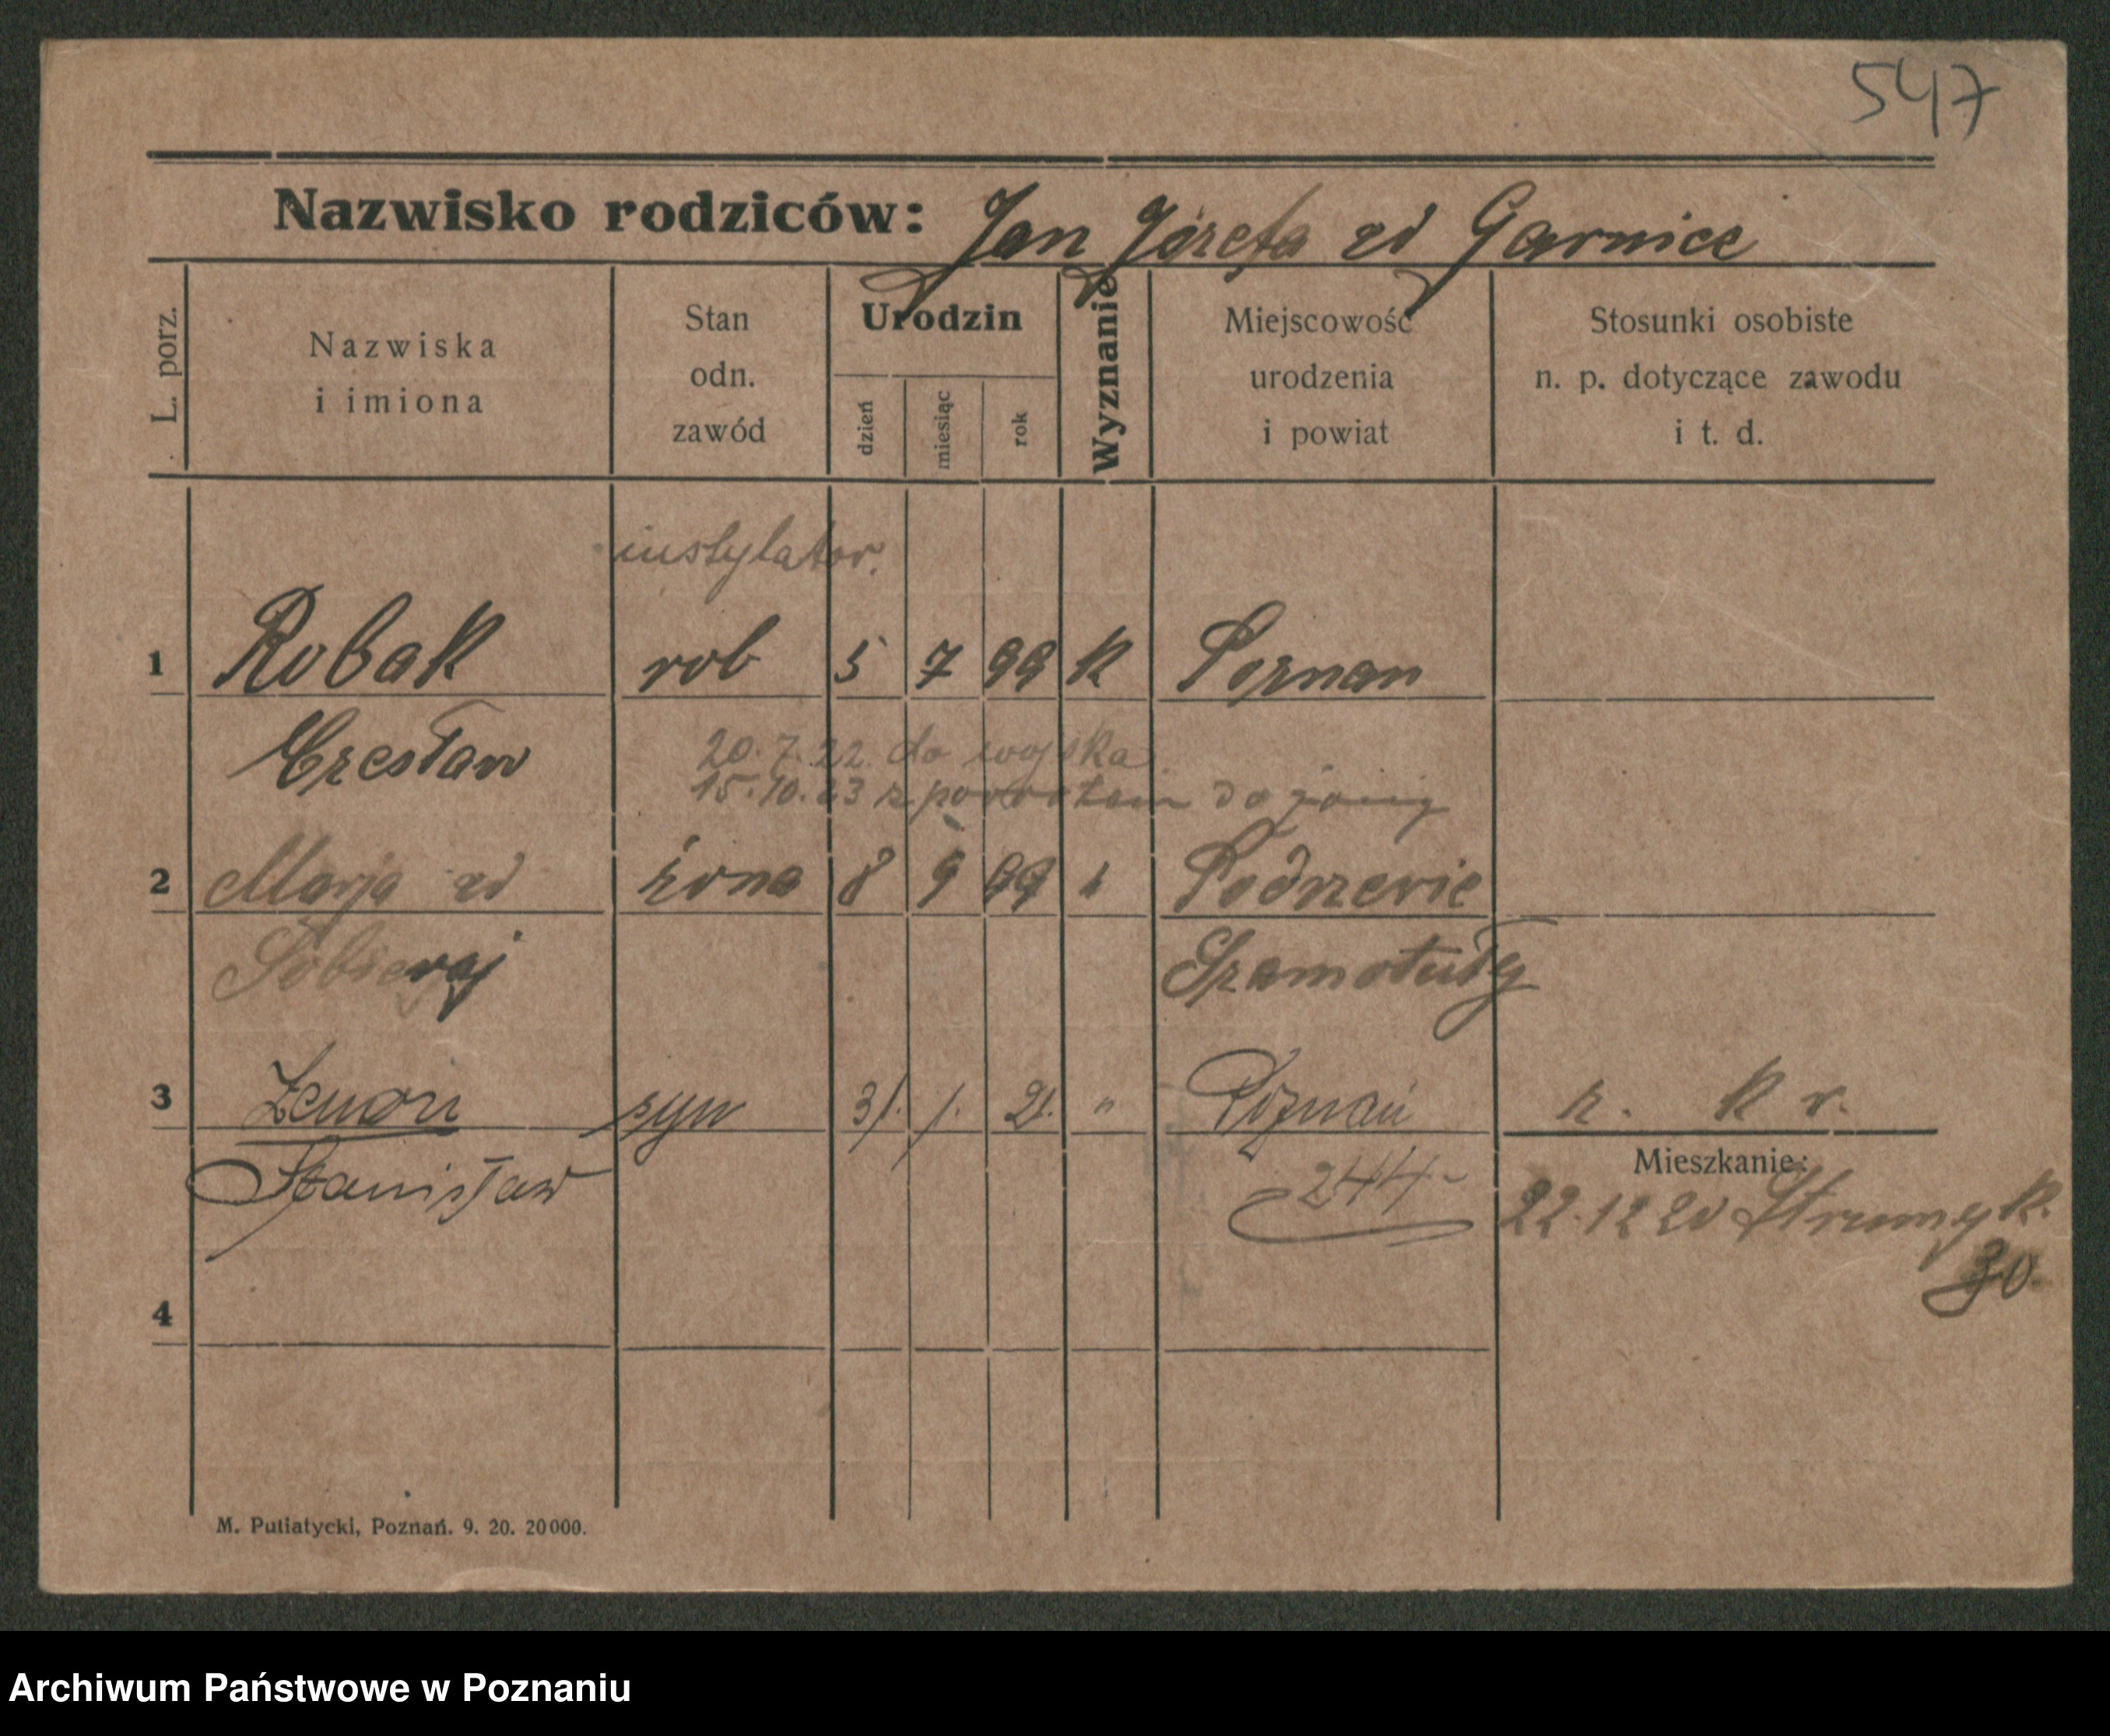 547
Nazwisko rodziców: Jan Józefa zd Garnice
L. porz.
Nazwiska
i imiona
Stan
odn.
zawód
Urodzin
dzień
miesiąc
rok
Wyznanie
Miejscowość
urodzenia
i powiat
Stosunki osobiste
n. p. dotyczące zawodu
i t. d.
instylator.
1 Robak rob 5 7 99 k Poznan
Czesław
20.7.22. do wojska
15.10.23 z powrotem do
2 Marja zd żona 8 9 99 Podrzewie
Sobieraj Szamotuły
3 Zenon syn 31. 1. 21. " Poznań r. k r.
Stanisław
244-
Mieszkanie:
22.12 20 Strumyk.
30.
4
M. Putiatycki, Poznań. 9. 20. 20000.
Archiwum Państwowe w Poznaniu